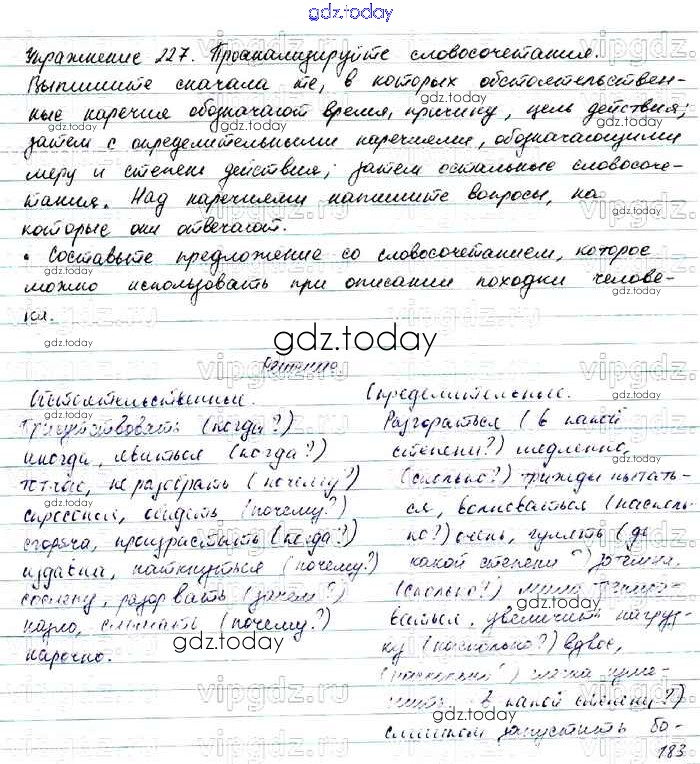 gdz.today
Упражнение 227. Проанализируйте словосочетания.
Выпишите сначала те, в которых обстоятельствен-
ные наречия обозначают время, причину, цель действия;
затем с определительными наречиями, обозначающими
меру и степень действия; затем остальные словосоче-
тания. Над наречиями напишите вопросы, на
которые они отвечают.
• Составьте предложение со словосочетанием, которое
можно использовать при описании походки челове-
ка.
gdz.today
Решение
Обстоятельственные.
Присутствовать (когда?)
иногда, явиться (когда?)
тотчас, не разобрать (почему?)
спросонок, обидеть (почему?)
сгоряча, произрастать (когда?)
издавна, наткнуться (почему?)
сослепу, разорвать (зачем?)
назло, сломать (почему?)
нарочно.
Определительные.
Разгораться (в какой
степени?) медленно,
(сколько?) трижды пытать-
ся, волноваться (насколь-
ко?) очень, гулять (до
какой степени?) дотемна,
(сколько?) мало
увеличить нагруз-
ку (насколько?) вдвое,
(насколько?) слегка
в какой степени?)
слишком запустить бо-
183